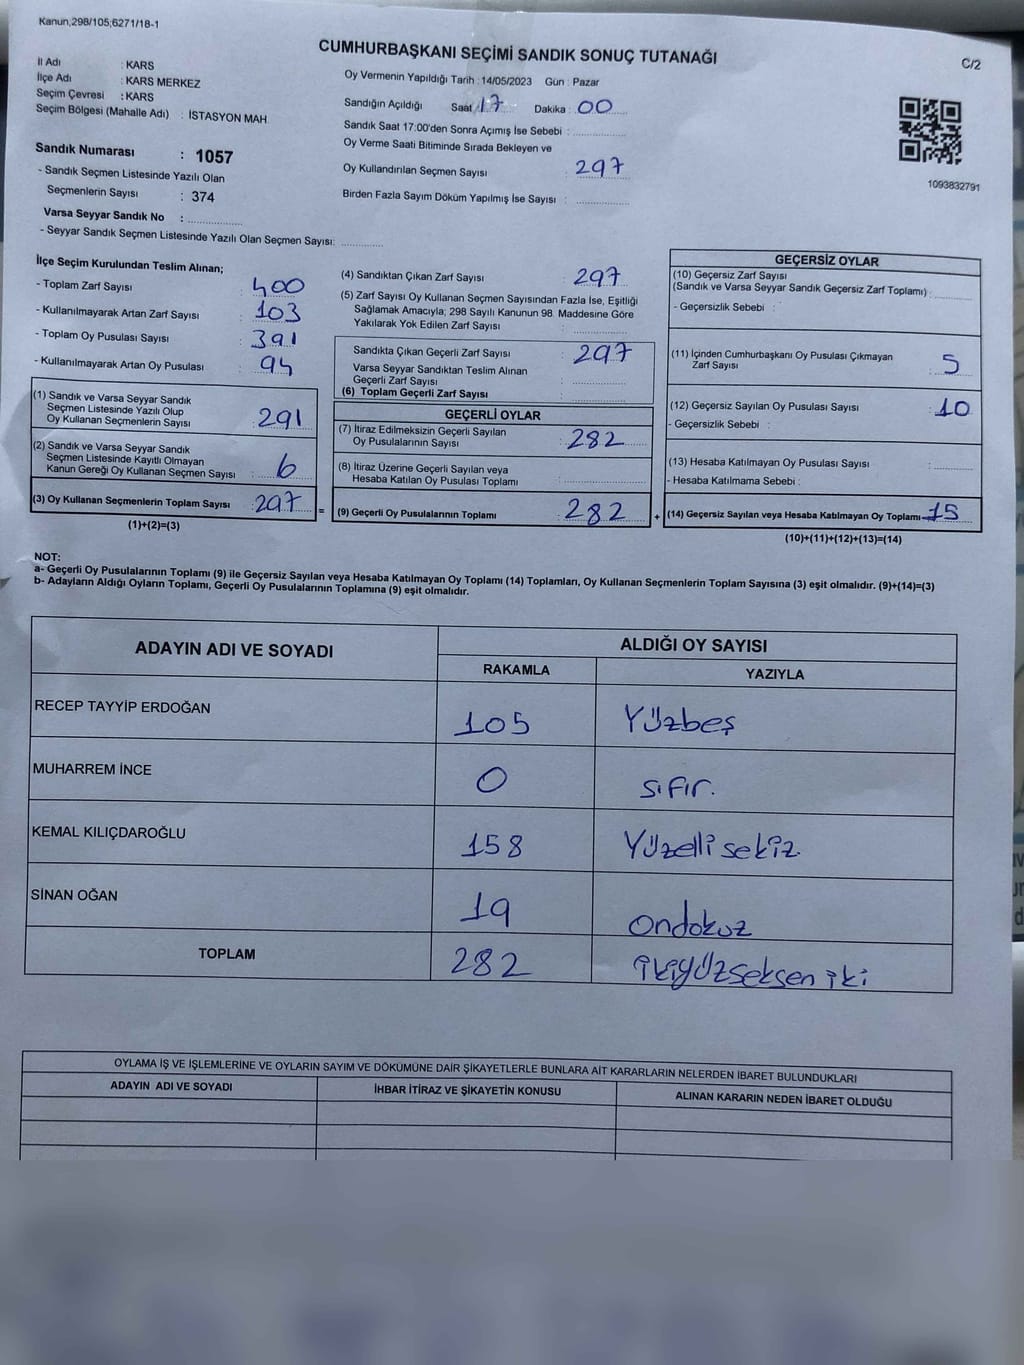 Kanun,298/105;6271/18-1
CUMHURBAŞKANI SEÇİMİ SANDIK SONUÇ TUTANAĞI
C/2
İl Adı : KARS
İlçe Adı : KARS MERKEZ
Seçim Çevresi : KARS
Seçim Bölgesi (Mahalle Adı) : İSTASYON MAH
Sandık Numarası : 1057
- Sandık Seçmen Listesinde Yazılı Olan
Seçmenlerin Sayısı : 374
Varsa Seyyar Sandık No :
- Seyyar Sandık Seçmen Listesinde Yazılı Olan Seçmen Sayısı:
Oy Vermenin Yapıldığı Tarih : 14/05/2023 Gün : Pazar
Sandığın Açıldığı Saat : 17 Dakika : 00
Sandık Saat 17:00'den Sonra Açımış İse Sebebi :
Oy Verme Saati Bitiminde Sırada Bekleyen ve
Oy Kullandırılan Seçmen Sayısı : 297
Birden Fazla Sayım Döküm Yapılmış İse Sayısı :
1093832791
İlçe Seçim Kurulundan Teslim Alınan;
- Toplam Zarf Sayısı : 400
- Kullanılmayarak Artan Zarf Sayısı : 103
- Toplam Oy Pusulası Sayısı : 391
- Kullanılmayarak Artan Oy Pusulası : 94
(1) Sandık ve Varsa Seyyar Sandık
Seçmen Listesinde Yazılı Olup
Oy Kullanan Seçmenlerin Sayısı : 291
(2) Sandık ve Varsa Seyyar Sandık
Seçmen Listesinde Kayıtlı Olmayan
Kanun Gereği Oy Kullanan Seçmen Sayısı : 6
(3) Oy Kullanan Seçmenlerin Toplam Sayısı : 297
(1)+(2)=(3)
(4) Sandıktan Çıkan Zarf Sayısı : 297
(5) Zarf Sayısı Oy Kullanan Seçmen Sayısından Fazla İse, Eşitliği
Sağlamak Amacıyla; 298 Sayılı Kanunun 98. Maddesine Göre
Yakılarak Yok Edilen Zarf Sayısı :
Sandıkta Çıkan Geçerli Zarf Sayısı : 297
Varsa Seyyar Sandıktan Teslim Alınan
Geçerli Zarf Sayısı :
(6) Toplam Geçerli Zarf Sayısı :
GEÇERLİ OYLAR
(7) İtiraz Edilmeksizin Geçerli Sayılan
Oy Pusulalarının Sayısı : 282
(8) İtiraz Üzerine Geçerli Sayılan veya
Hesaba Katılan Oy Pusulası Toplamı :
= (9) Geçerli Oy Pusulalarının Toplamı : 282
GEÇERSİZ OYLAR
(10) Geçersiz Zarf Sayısı
(Sandık ve Varsa Seyyar Sandık Geçersiz Zarf Toplamı) :
- Geçersizlik Sebebi :
(11) İçinden Cumhurbaşkanı Oy Pusulası Çıkmayan
Zarf Sayısı : 5
(12) Geçersiz Sayılan Oy Pusulası Sayısı : 10
- Geçersizlik Sebebi :
(13) Hesaba Katılmayan Oy Pusulası Sayısı :
- Hesaba Katılmama Sebebi :
+ (14) Geçersiz Sayılan veya Hesaba Katılmayan Oy Toplamı : 15
(10)+(11)+(12)+(13)=(14)
NOT:
a- Geçerli Oy Pusulalarının Toplamı (9) ile Geçersiz Sayılan veya Hesaba Katılmayan Oy Toplamı (14) Toplamları, Oy Kullanan Seçmenlerin Toplam Sayısına (3) eşit olmalıdır. (9)+(14)=(3)
b- Adayların Aldığı Oyların Toplamı, Geçerli Oy Pusulalarının Toplamına (9) eşit olmalıdır.
ADAYIN ADI VE SOYADI
ALDIĞI OY SAYISI
RAKAMLA YAZIYLA
RECEP TAYYİP ERDOĞAN 105 Yüzbeş
MUHARREM İNCE 0 sıfır.
KEMAL KILIÇDAROĞLU 158 Yüzelli sekiz.
SİNAN OĞAN 19 ondokuz
TOPLAM 282 ikiyüzseksen iki
OYLAMA İŞ VE İŞLEMLERİNE VE OYLARIN SAYIM VE DÖKÜMÜNE DAİR ŞİKAYETLERLE BUNLARA AİT KARARLARIN NELERDEN İBARET BULUNDUKLARI
ADAYIN ADI VE SOYADI İHBAR İTİRAZ VE ŞİKAYETİN KONUSU ALINAN KARARIN NEDEN İBARET OLDUĞU